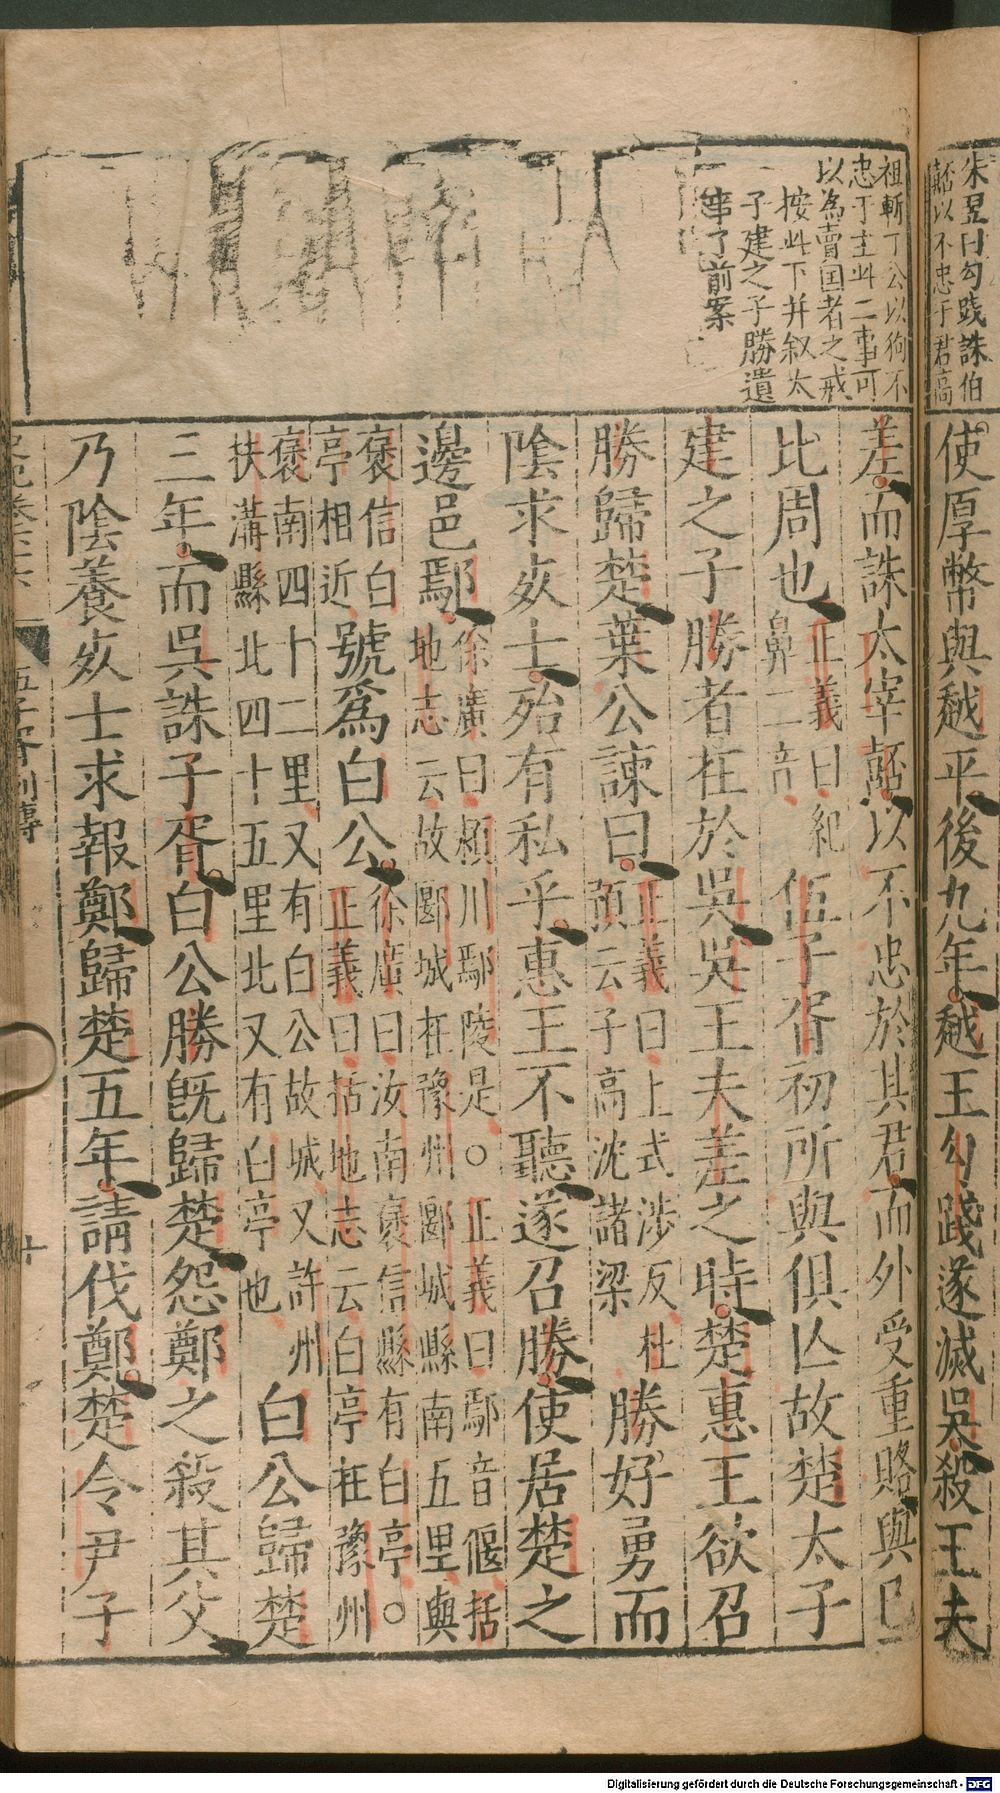 朱昱曰勾踐誅伯
嚭以不忠于君高
使厚幣與越平後九年越王勾踐遂滅吳殺王夫
祖斬丁公以狥不
忠于主此二事可
以為賣国者之戒
按此下并叙太
子建之子勝遺
事了前案
差而誅太宰嚭以不忠於其君而外受重賂與已
比周也
正義曰紀
鼻二音
伍子胥初所與俱亾故楚太子
建之子勝者在於吳吳王夫差之時楚惠王欲召
勝歸楚葉公諫曰
正義曰上式涉反杜
預云子高沈諸梁
勝好勇而
陰求死士殆有私乎惠王不聽遂召勝使居楚之
邊邑鄢
徐廣曰潁川鄢陵是○正義曰鄢音偃括
地志云故郾城在豫州郾城縣南五里與
褒信白
亭相近
號爲白公
徐廣曰汝南褒信縣有白亭○
正義曰括地志云白亭在豫州
褒南四十二里又有白公故城又許州
扶溝縣北四十五里北又有白亭也
白公歸楚
三年而吳誅子胥白公勝旣歸楚怨鄭之殺其父
乃陰養死士求報鄭歸楚五年請伐鄭楚令尹子
伍子胥列傳
十
Digitalisierung gefördert durch die Deutsche Forschungsgemeinschaft - DFG